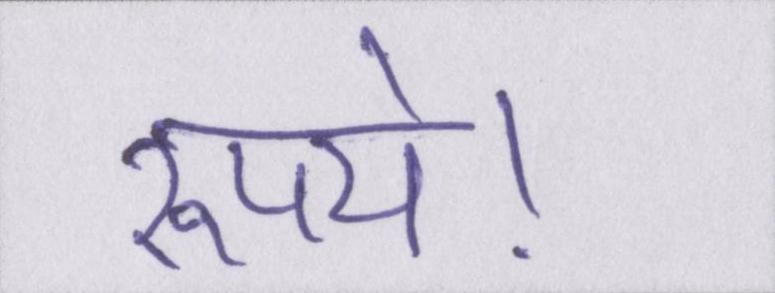 रूपये!